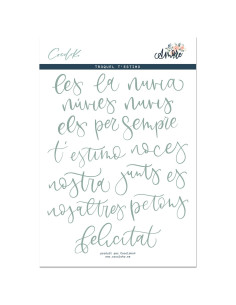 TROQUEL T'ESTIMO
les la nuvia
núvies nuvis
els per sempre
t'estimo noces
nostra junts es
nosaltres petons
felicitat